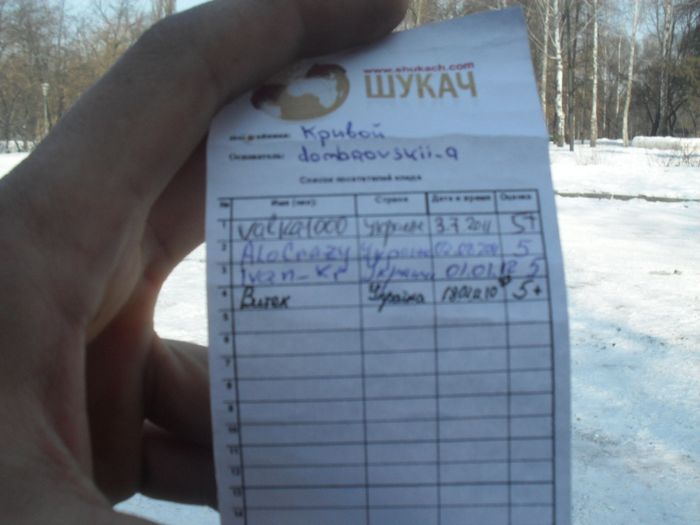 www.shukach.com
ШУКАЧ
Кривой
Основатель: dombrovskii-a
Список посетителей клада
№ Имя (ник) Страна Дата и время Оценка
1 valka1000 Украина 3.7.2011 5+
2 AloCrazy Украина 5
3 ivan_kr Украина 01.01.12 5
4 Витек Україна 5+
5
6
7
8
9
10
11
12
13
14